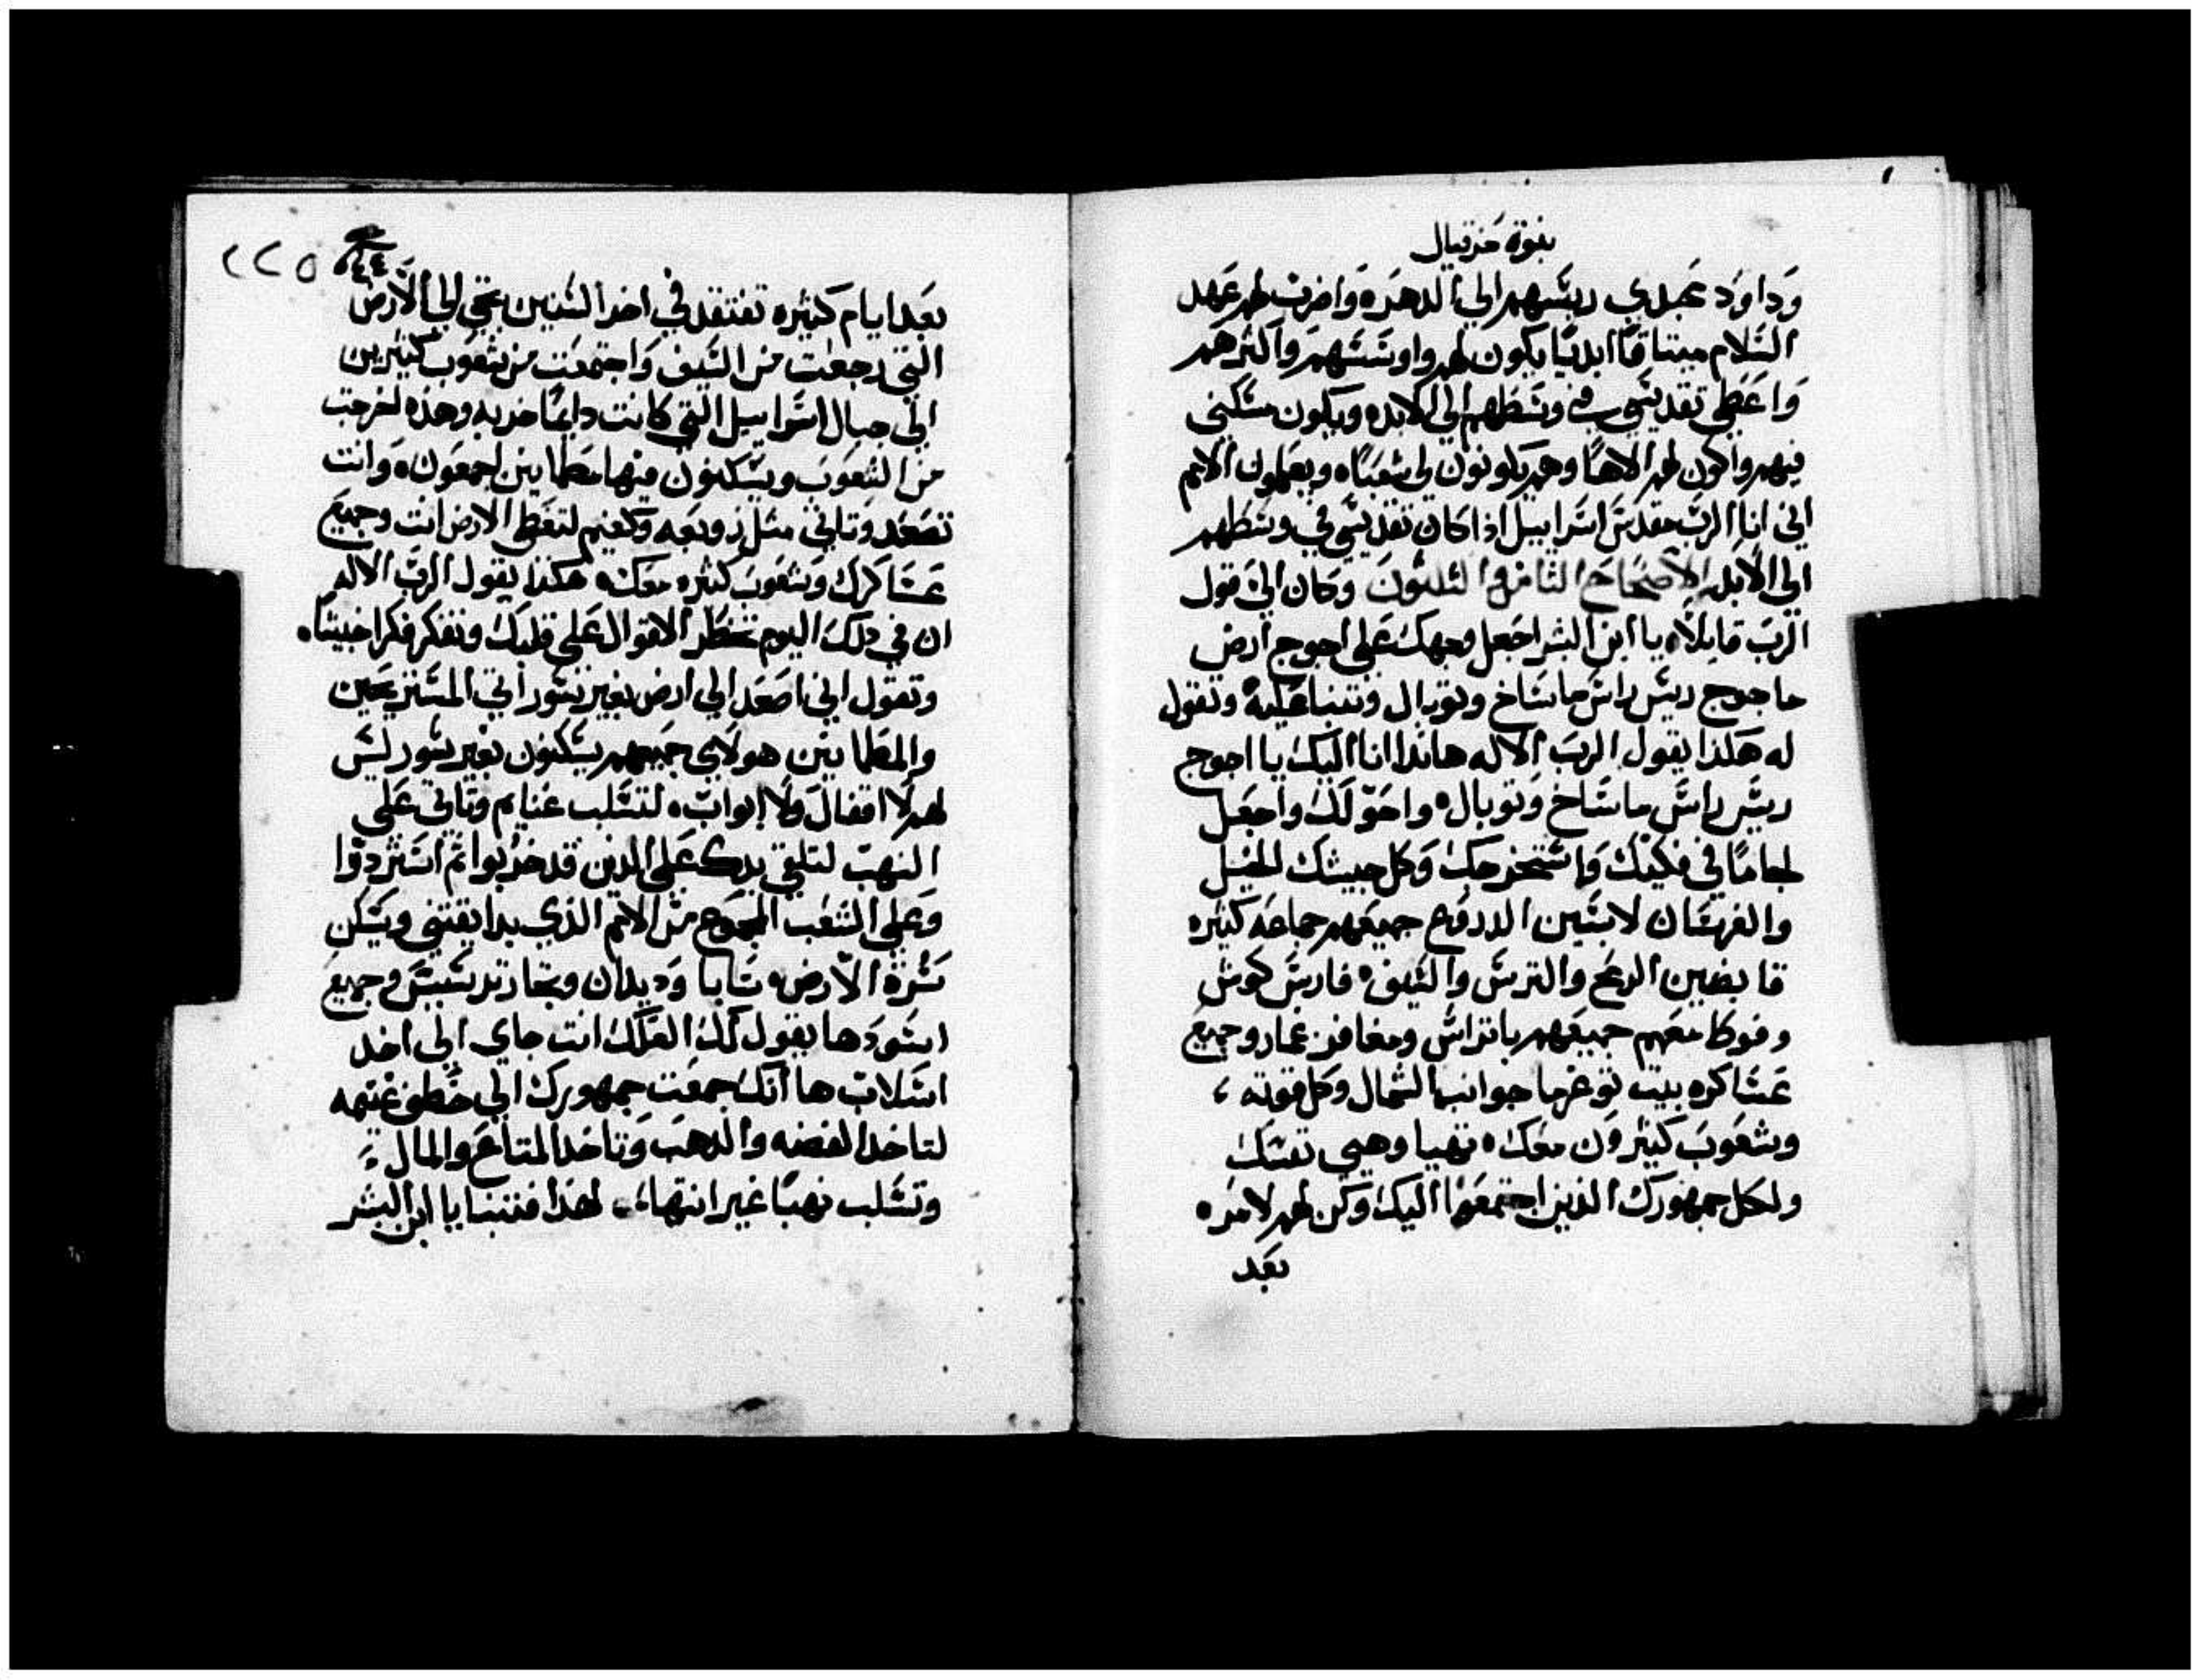 نبوة حزقيال
وَداوَد عَبدي ريسَهم الي الدهَره وَاضرب لهم عَهد
السَلام ميتاقًا ابديًا يكون لهم واوسَسَهم وَاكثرهم
وَاعَطي تقديسَي في وسَطهم الي الابده ويكون مسَكني
فيهم واكون لهم الاهًا وهم يكونون لي شعبًاه ويعَلمون الامم
اني انا الربَ مقدسَ اسَراييل اذا كان تقديسَي في وسَطهم
الي الابد الاصحَاحَ الثامن والثلثونَ وكان اليَ قول
الربَ قايلًاه يا ابن البشر اجَعل وجهكَ عَلي اجوج ارض
ماجوج ريسَ راسَ ماسَاخ وتوبال وتتنبا عَليهَ وتقول
له هَكذا يقول الربَ الاله هاندا انا اليكَ يا اجوج
ريسَ راسَ ماسَاخ وَتوبال ه واحَوّلكَ واجعَل
لجامًا في فكيْكَ وَاسَتخرجكَ وَكل جيشكَ الخيل
والفرسَان لابسَين الدروع جميعَهم جماعَه كثيره
قابضين الرمَح والترسَ والسَيف ه فارسَ كوسَ
وفوطا معَهم جميعَهم باتراسَ ومغافر غمار وجميعَ
عَسَاكره بيت توغرما جوانب الشمال وَكل قوته ،
وشعَوبَ كثيروَن معَكَ ه تهيا وهيي نفسَكَ
ولكل جمهوركَ الذين اجتمعَوا اليكَ وَكن لهم لامره
بعَد
٤٤
٢٢٥
بعَد ايام كثيره تفتقد في اخر السَنين تجي الي الارض
التي رجعَت من السَيف وَاجتمعَت من شعَوبَ كثيرين
الي جبال اسَراييل التي كانت دايمًا خربه وهذه اخرجت
من الشعَوبَ ويسَكنون فيها مطَمانين اجمعَون ه وَانت
تصعَد وَتاتي مثل زوبعَه وَكغيم لتغَطي الارض انت وجميعَ
عَسَاكركَ وَشعَوبَ كثره معَكَ ه هكذا يقول الربّ الاله
ان في ذلكَ اليوم تخطَر الاقوال عَلي قلبكَ وتفكر فكرا خبيثًاه
وتقول اني اصَعَد الي ارض بغير سَور اتي المسَتريحَين
والمطَمانين هولاي جميعَهم يسَكنون بغير سَور ليسَ
لهم لا اقفال وَلا ابوابَ ه لتسَلب غنايم وتاتي عَلي
النهبَ لتلقي يدكَ عَلي الدين قد خربوا ثم اسَترَدّوا
وَعَلي الشعَب المجموَع من الامم الذي بدا يقتني ويسَكن
سَرّة الارض ه سَابا وَديدان وتجار ترسَيسَ وجميعَ
اسَودَها يقول لكَ العَلكَ انت جاي الي اخد
اسَلابَ ها انكَ جمعَت جمهوركَ الي خَطف غنيمه
لتاخدا لفضه والدهبَ وَتاخدا لمتاعَ والمال ءَ
وتسَلب نهبًا غير انتها، ه لهذا فتنبا يا ابن البشر